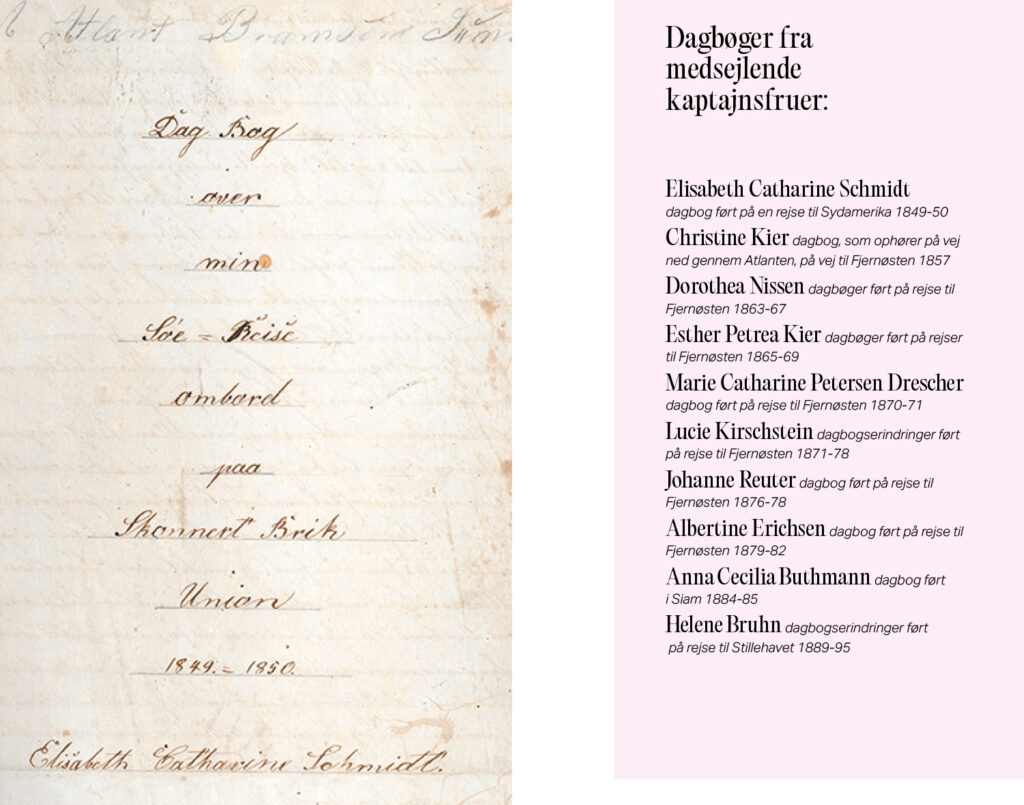 Atlant Bramsens
Dag Bog
over
min
Søe = Reise
ombord
paa
Skonnert Brik
Union
1849. = 1850.
Elisabeth Catharine Schmidt.
Dagbøger fra
medsejlende
kaptajnsfruer:
Elisabeth Catharine Schmidt
dagbog ført på en rejse til Sydamerika 1849-50
Christine Kier dagbog, som ophører på vej
ned gennem Atlanten, på vej til Fjernøsten 1857
Dorothea Nissen dagbøger ført på rejse til
Fjernøsten 1863-67
Esther Petrea Kier dagbøger ført på rejser
til Fjernøsten 1865-69
Marie Catharine Petersen Drescher
dagbog ført på rejse til Fjernøsten 1870-71
Lucie Kirschstein dagbogserindringer ført
på rejse til Fjernøsten 1871-78
Johanne Reuter dagbog ført på rejse til
Fjernøsten 1876-78
Albertine Erichsen dagbog ført på rejse til
Fjernøsten 1879-82
Anna Cecilia Buthmann dagbog ført
i Siam 1884-85
Helene Bruhn dagbogserindringer ført
på rejse til Stillehavet 1889-95